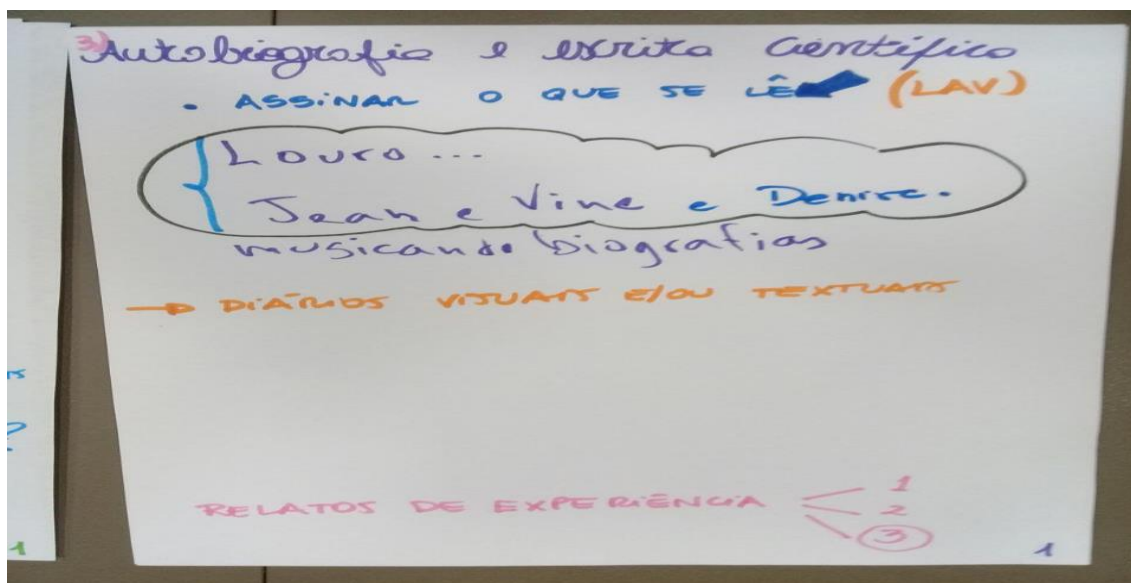 3) Autobiografia e escrita Científica
• ASSINAR O QUE SE LÊ (LAV)
Louro...
Jean e Vine e Denise.
musicando biografias
→ DIÁRIOS VISUAIS E/OU TEXTUAIS
RELATOS DE EXPERIÊNCIA
1
2
3
1
1